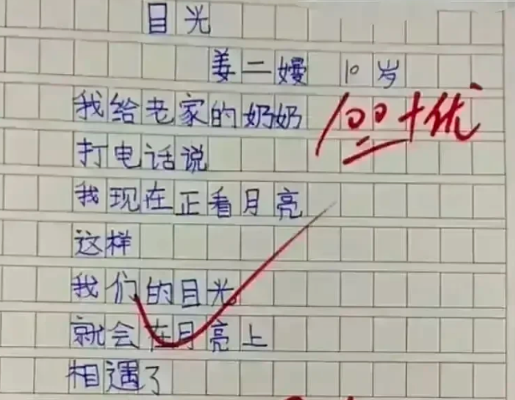 目光
姜二嫚 10岁
我给老家的奶奶
100+优
打电话说
我现在正看月亮
这样
我们的目光
就会在月亮上
相遇了